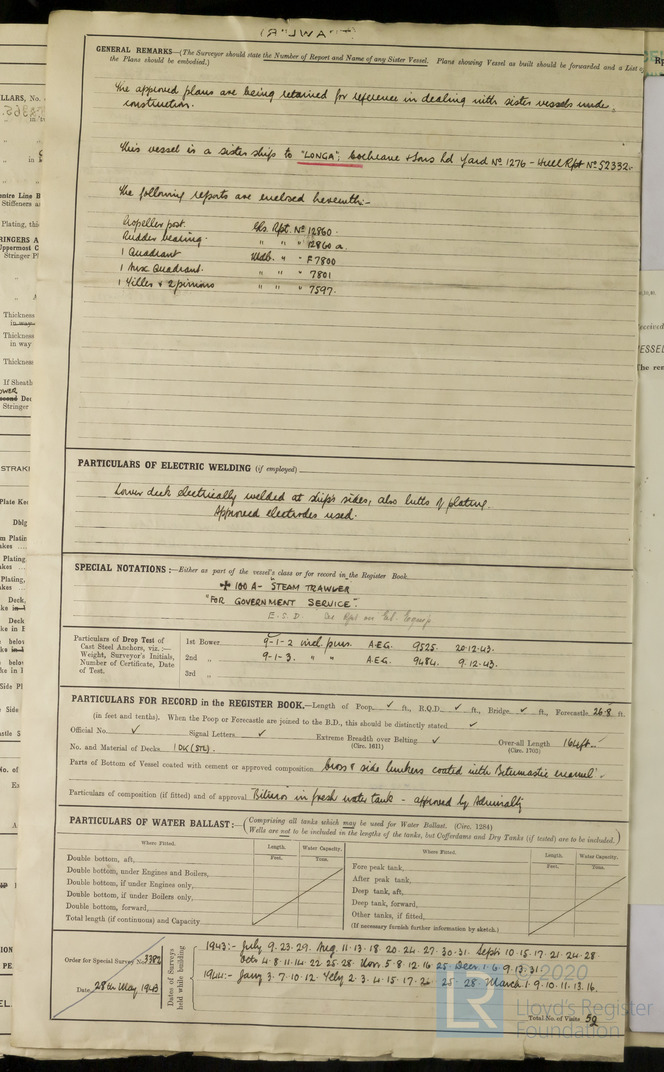 GENERAL REMARKS—(The Surveyor should state the Number of Report and Name of any Sister Vessel. Plans showing Vessel as built should be forwarded and a List of
the Plans should be embodied.)
The approved plans are being retained for reference in dealing with sister vessels under
construction.
This vessel is a sister ship to "LONGA", Cochrane & Sons Ld Yard No 1276 - Hull Rpt No 52332.
The following reports are enclosed herewith:-
Propeller post. Gls. Rpt. No 12860.
Rudder bearing. " " " 12860 a.
1 Quadrant Mdb. " " F7800
1 Quadrant. " " " 7801
1 & 2 pinions " " " 7597.
PARTICULARS OF ELECTRIC WELDING (if employed)
Lower deck electrically welded at ship's sides, also butts of plating.
Approved electrodes used.
SPECIAL NOTATIONS:—Either as part of the vessel's class or for record in the Register Book
✠ 100 A- "STEAM TRAWLER
"FOR GOVERNMENT SERVICE".
E.S.D. See Rpt on Equip
Particulars of Drop Test of
Cast Steel Anchors, viz.:—
Weight, Surveyor's Initials,
Number of Certificate, Date
of Test.
1st Bower 9-1-2 incl. A.E.G. 9525. 20.12.43.
2nd „ 9-1-3. " " A.E.G. 9484. 9.12.43.
3rd „
PARTICULARS FOR RECORD in the REGISTER BOOK.—Length of Poop ✓ ft., R.Q.D. ✓ ft., Bridge ✓ ft., Forecastle 26.8 ft.
(in feet and tenths). When the Poop or Forecastle are joined to the B.D., this should be distinctly stated ✓
Official No. ✓ Signal Letters ✓ Extreme Breadth over Belting ✓ Over-all Length 164ft.
(Circ. 1611) (Circ. 1703)
No. and Material of Decks 1 DK (STL).
Parts of Bottom of Vessel coated with cement or approved composition & side bunkers coated with Bitumastic enamel.
Particulars of composition (if fitted) and of approval Bituros in fresh water tank - approved by Admiralty
PARTICULARS OF WATER BALLAST:—(Comprising all tanks which may be used for Water Ballast. (Circ. 1284)
Wells are not to be included in the lengths of the tanks, but Cofferdams and Dry Tanks (if tested) are to be included.)
Where Fitted. Length. Water Capacity. Where Fitted. Length. Water Capacity.
Feet. Tons. Feet. Tons.
Double bottom, aft,
Double bottom, under Engines and Boilers,
Double bottom, if under Engines only,
Double bottom, if under Boilers only,
Double bottom, forward,
Total length (if continuous) and Capacity
Fore peak tank,
After peak tank,
Deep tank, aft,
Deep tank, forward,
Other tanks, if fitted,
(If necessary furnish further information by sketch.)
Order for Special Survey No. 3382
Date 28th May 1943
Dates of Surveys held while building
1943:- July 9.23.29. Aug 11.13.18.20.24.27.30.31. Sept 10.15.17.21.24.28.
Oct 4.8.11.14.22.25.28. Nov. 5.8.12.16.25. Decr. 1.6.9.13.31.
1944:- Jany 3.7.10.12. Feby 2.3.4.15.17.26.25.28. March 1.9.10.11.13.16.
Total No. of Visits 52
© 2020
LR
Lloyd's Register
Foundation